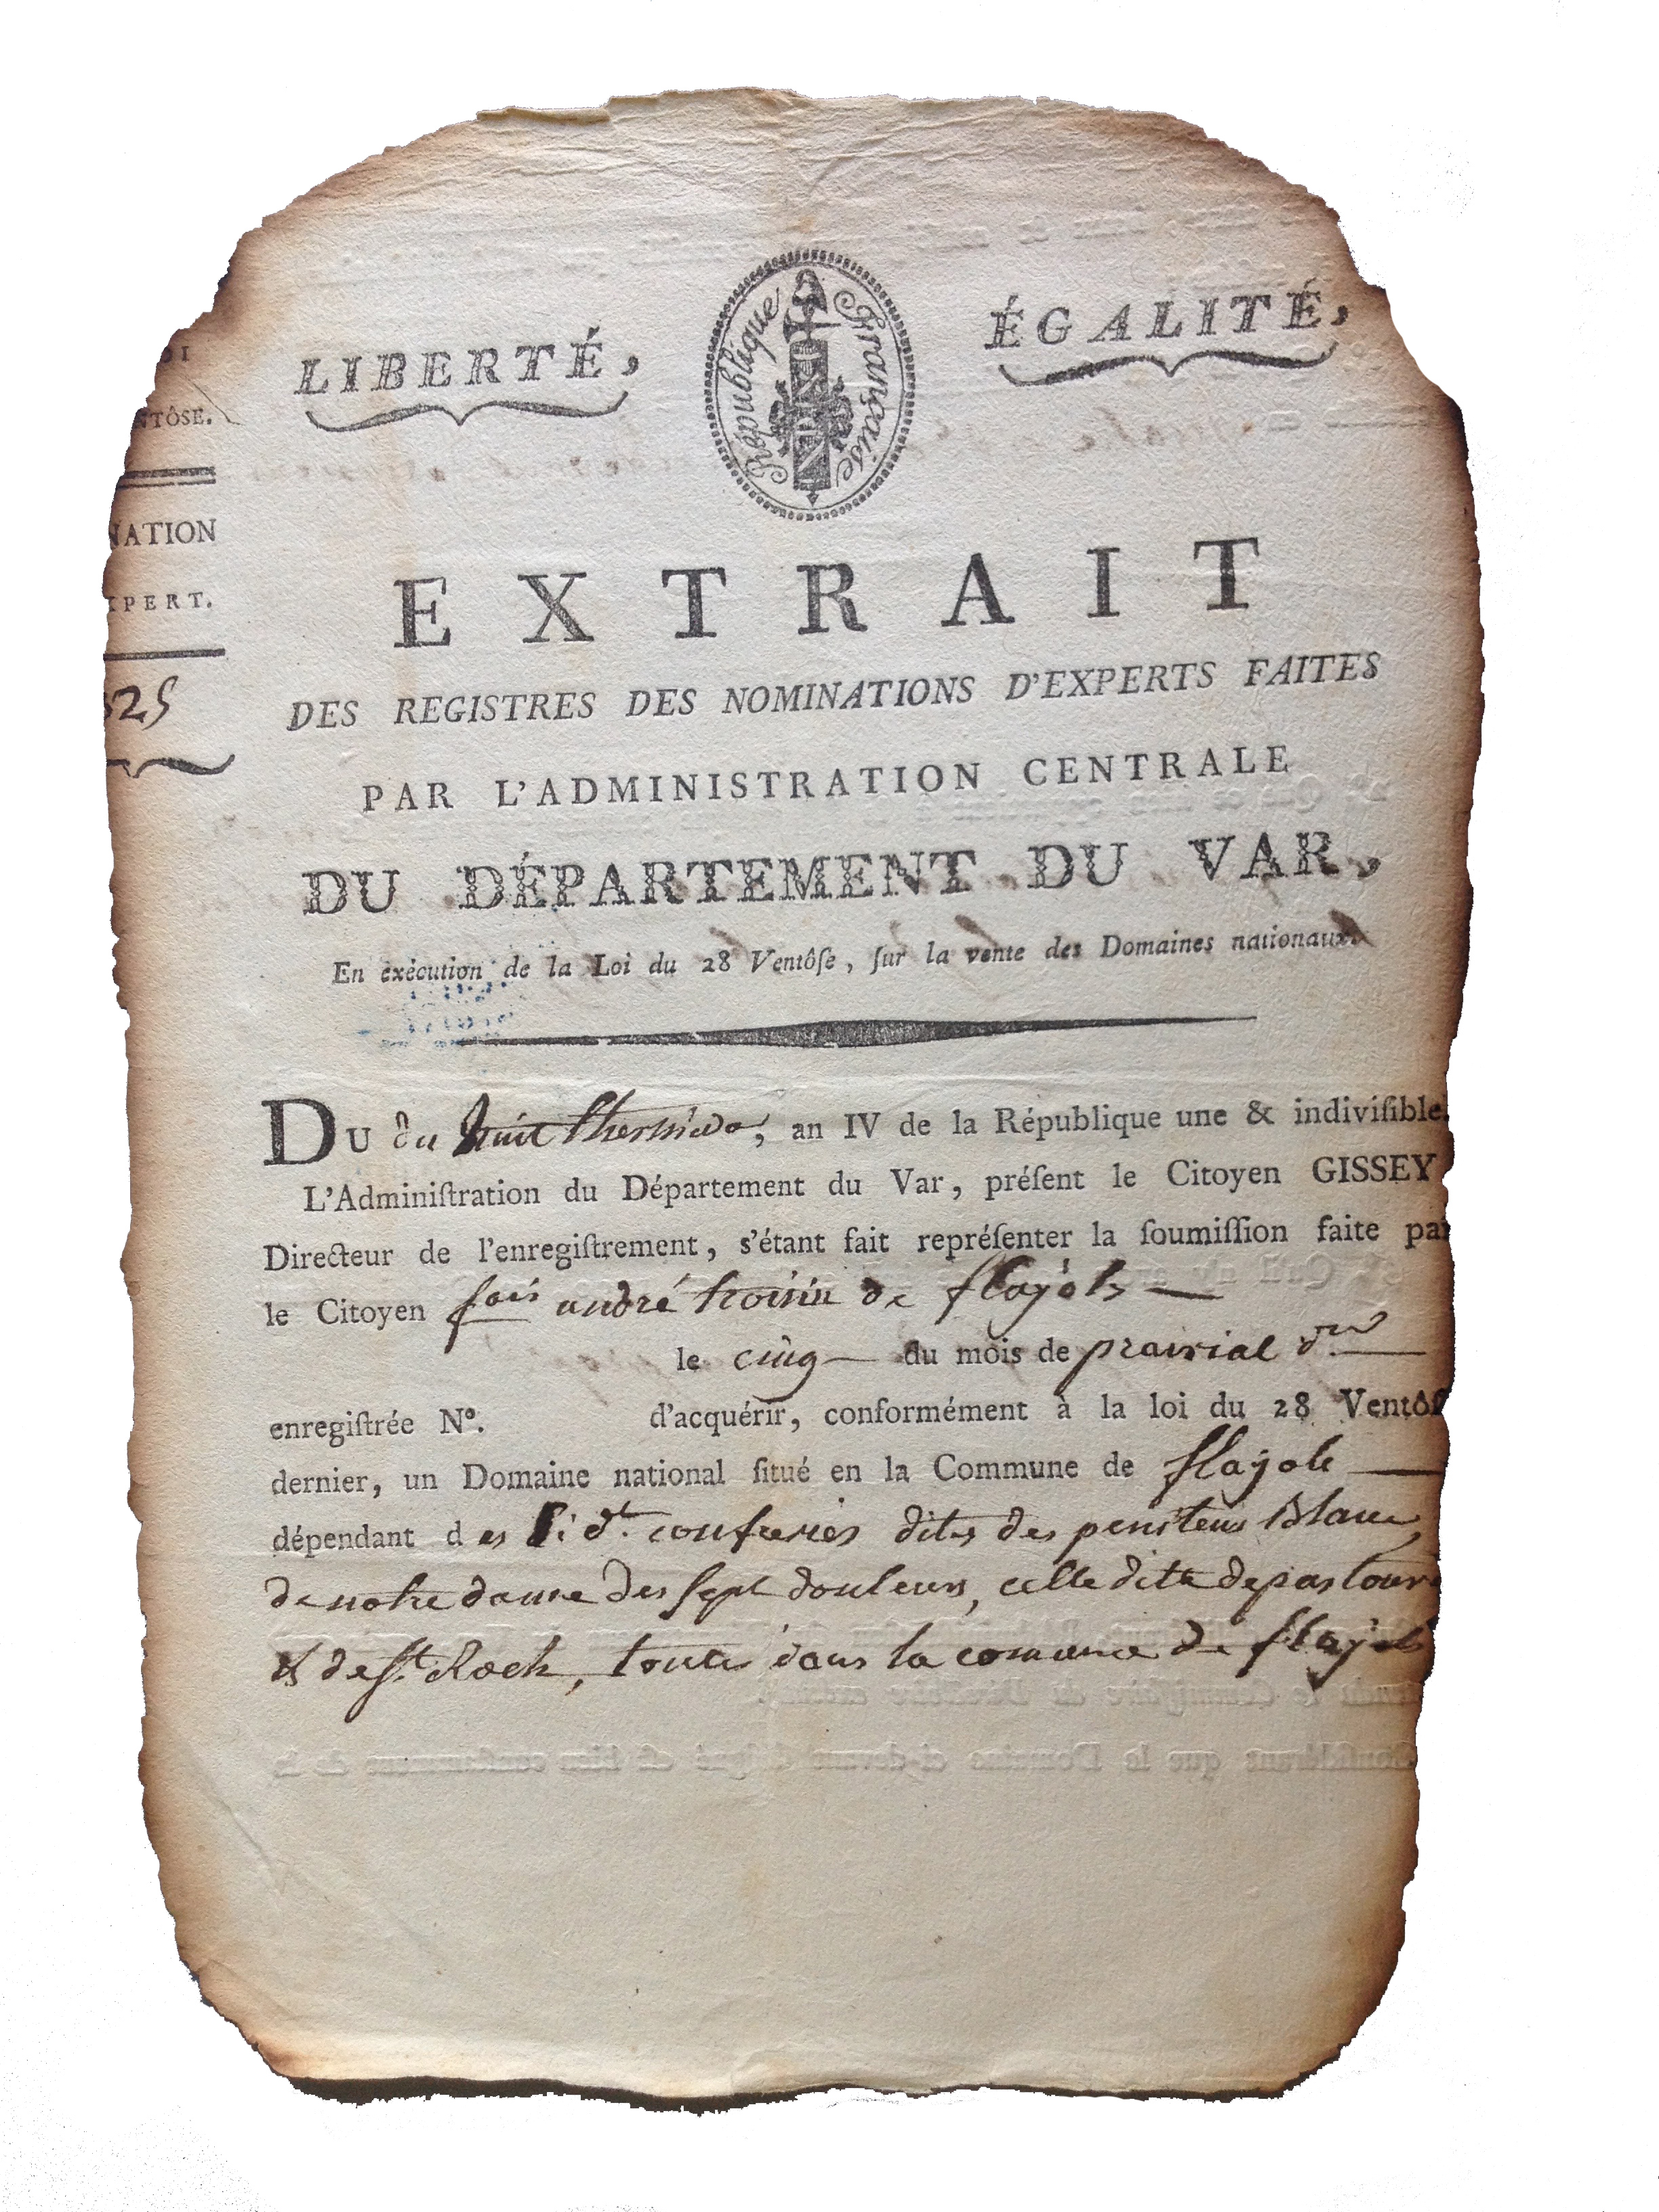 LIBERTÉ,
République Française
ÉGALITÉ,
NTÔSE.
NATION
XPERT.
325
EXTRAIT
DES REGISTRES DES NOMINATIONS D'EXPERTS FAITES
PAR L'ADMINISTRATION CENTRALE
DU DÉPARTEMENT DU VAR,
En exécution de la Loi du 28 Ventôſe, ſur la vente des Domaines nationaux.
DU du huit thermidor, an IV de la République une & indiviſible.
L'Adminiſtration du Département du Var, préſent le Citoyen GISSEY
Directeur de l'enregiſtrement, s'étant fait repréſenter la ſoumiſſion faite par
le Citoyen fois andré troin de flayols
le cinq du mois de prairial d.er
enregiſtrée Nº. d'acquérir, conformément à la loi du 28 Ventôſ
dernier, un Domaine national ſitué en la Commune de flayols
dépendant des confreries dites des penitens blancs,
de notre dame des sept douleurs, celle dite de pastour
et de St. Roch, toutes dans la comune de flayols